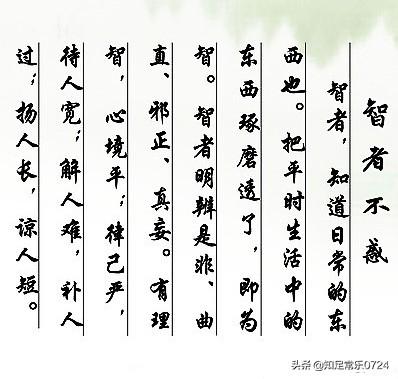 智者不惑
智者，知道日常的东
西也。把平时生活中的
东西琢磨透了，即为
智。智者明辨是非、曲
直、邪正、真妄。有理
智，心境平；律己严，
待人宽；解人难，补人
过；扬人长，谅人短。
头条 @知足常乐0724